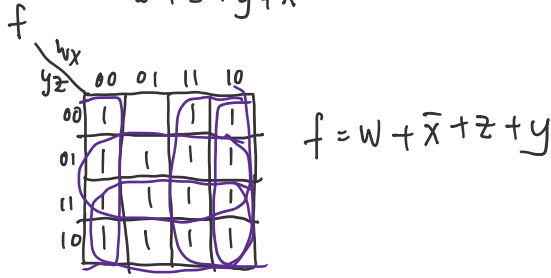 f
wx
yz 00 01 11 10
00 1 1 1
01 1 1 1 1
11 1 1 1 1
10 1 1 1 1
f = w + x̄ + z + y